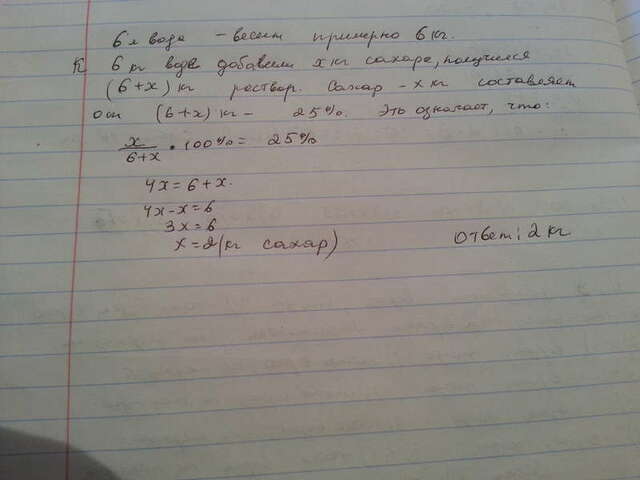 6 л вода - весит примерно 6 кг.
К 6 кг воде добавили x кг сахара, получился
(6+x) кг раствор. Сахар - x кг составляет
от (6+x) кг - 25%. Это означает, что:
x/(6+x) • 100% = 25%
4x = 6 + x.
4x - x = 6
3x = 6
x = 2 (кг сахар)
Ответ: 2 кг